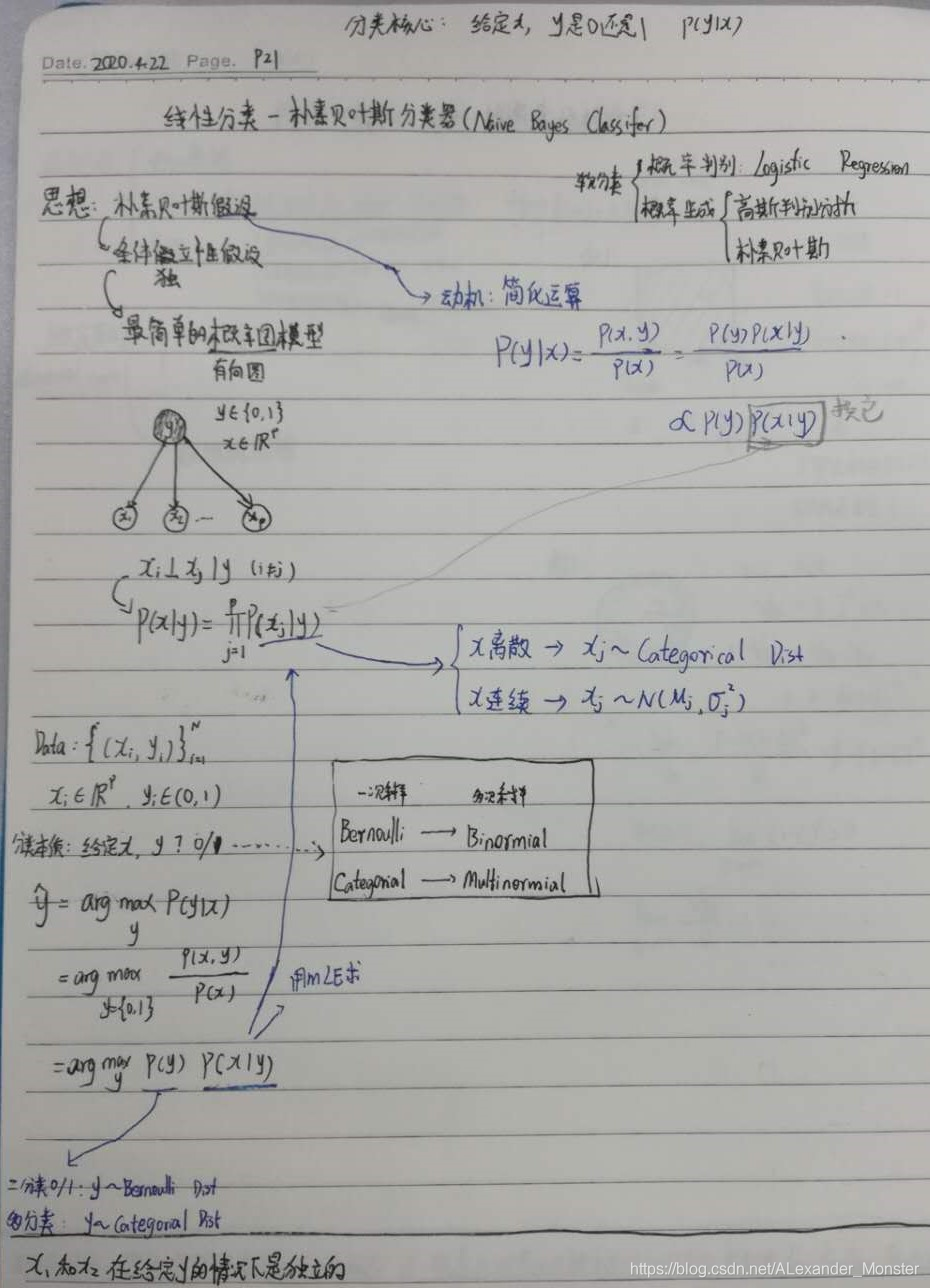 分类核心: 给定x, y是0还是1 P(y|x)
Date. 2020.4.22 Page. P21
线性分类-朴素贝叶斯分类器(Naive Bayes Classifer)
软分类 { 概率判别: Logistic Regression
概率生成 { 高斯判别分析
朴素贝叶斯
思想: 朴素贝叶斯假设
条件独立性假设
独
→ 动机: 简化运算
最简单的概率图模型
有向图
P(y|x) = P(x,y)/P(x) = P(y)P(x|y)/P(x)
∝ P(y) P(x|y)
y y∈{0,1}
x∈ℝᵖ
x₁ x₂ … xₚ
xᵢ⊥xⱼ|y (i≠j)
P(x|y) = ∏ⱼ₌₁ᵖ P(xⱼ|y)
x离散 → xj ~ Categorical Dist
x连续 → xj ~ N(μj, σj²)
Data: {(xᵢ, yᵢ)}ᵢ₌₁ᴺ
xᵢ∈ℝᵖ, yᵢ∈(0,1)
一次采样 多次采样
Bernoulli → Binormial
Categorial → Multinormial
分类本质: 给定x, y? 0/1
ŷ = arg max_y P(y|x)
= arg max_{y={0,1}} P(x,y)/P(x)
用MLE求
= arg max_y P(y) P(x|y)
二分类0/1: y~Bernoulli Dist
多分类: y~Categorial Dist
x₁和x₂在给定y的情况下是独立的
https://blog.csdn.net/ALexander_Monster